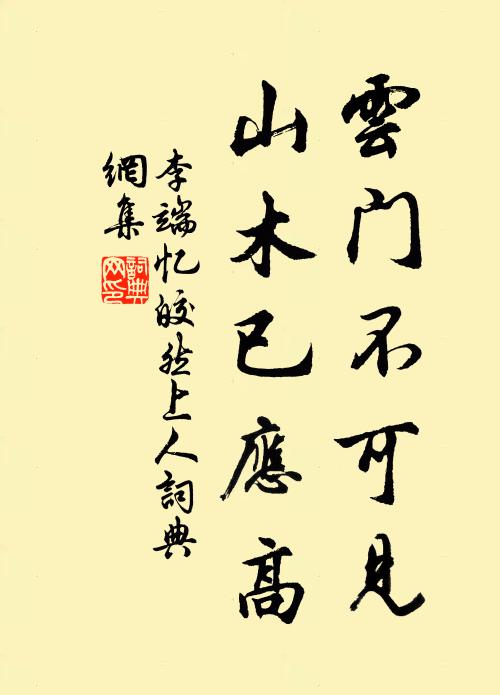 雲门不可見
山木已應高
李端忆皎然上人詞典
網集
詞典
网印